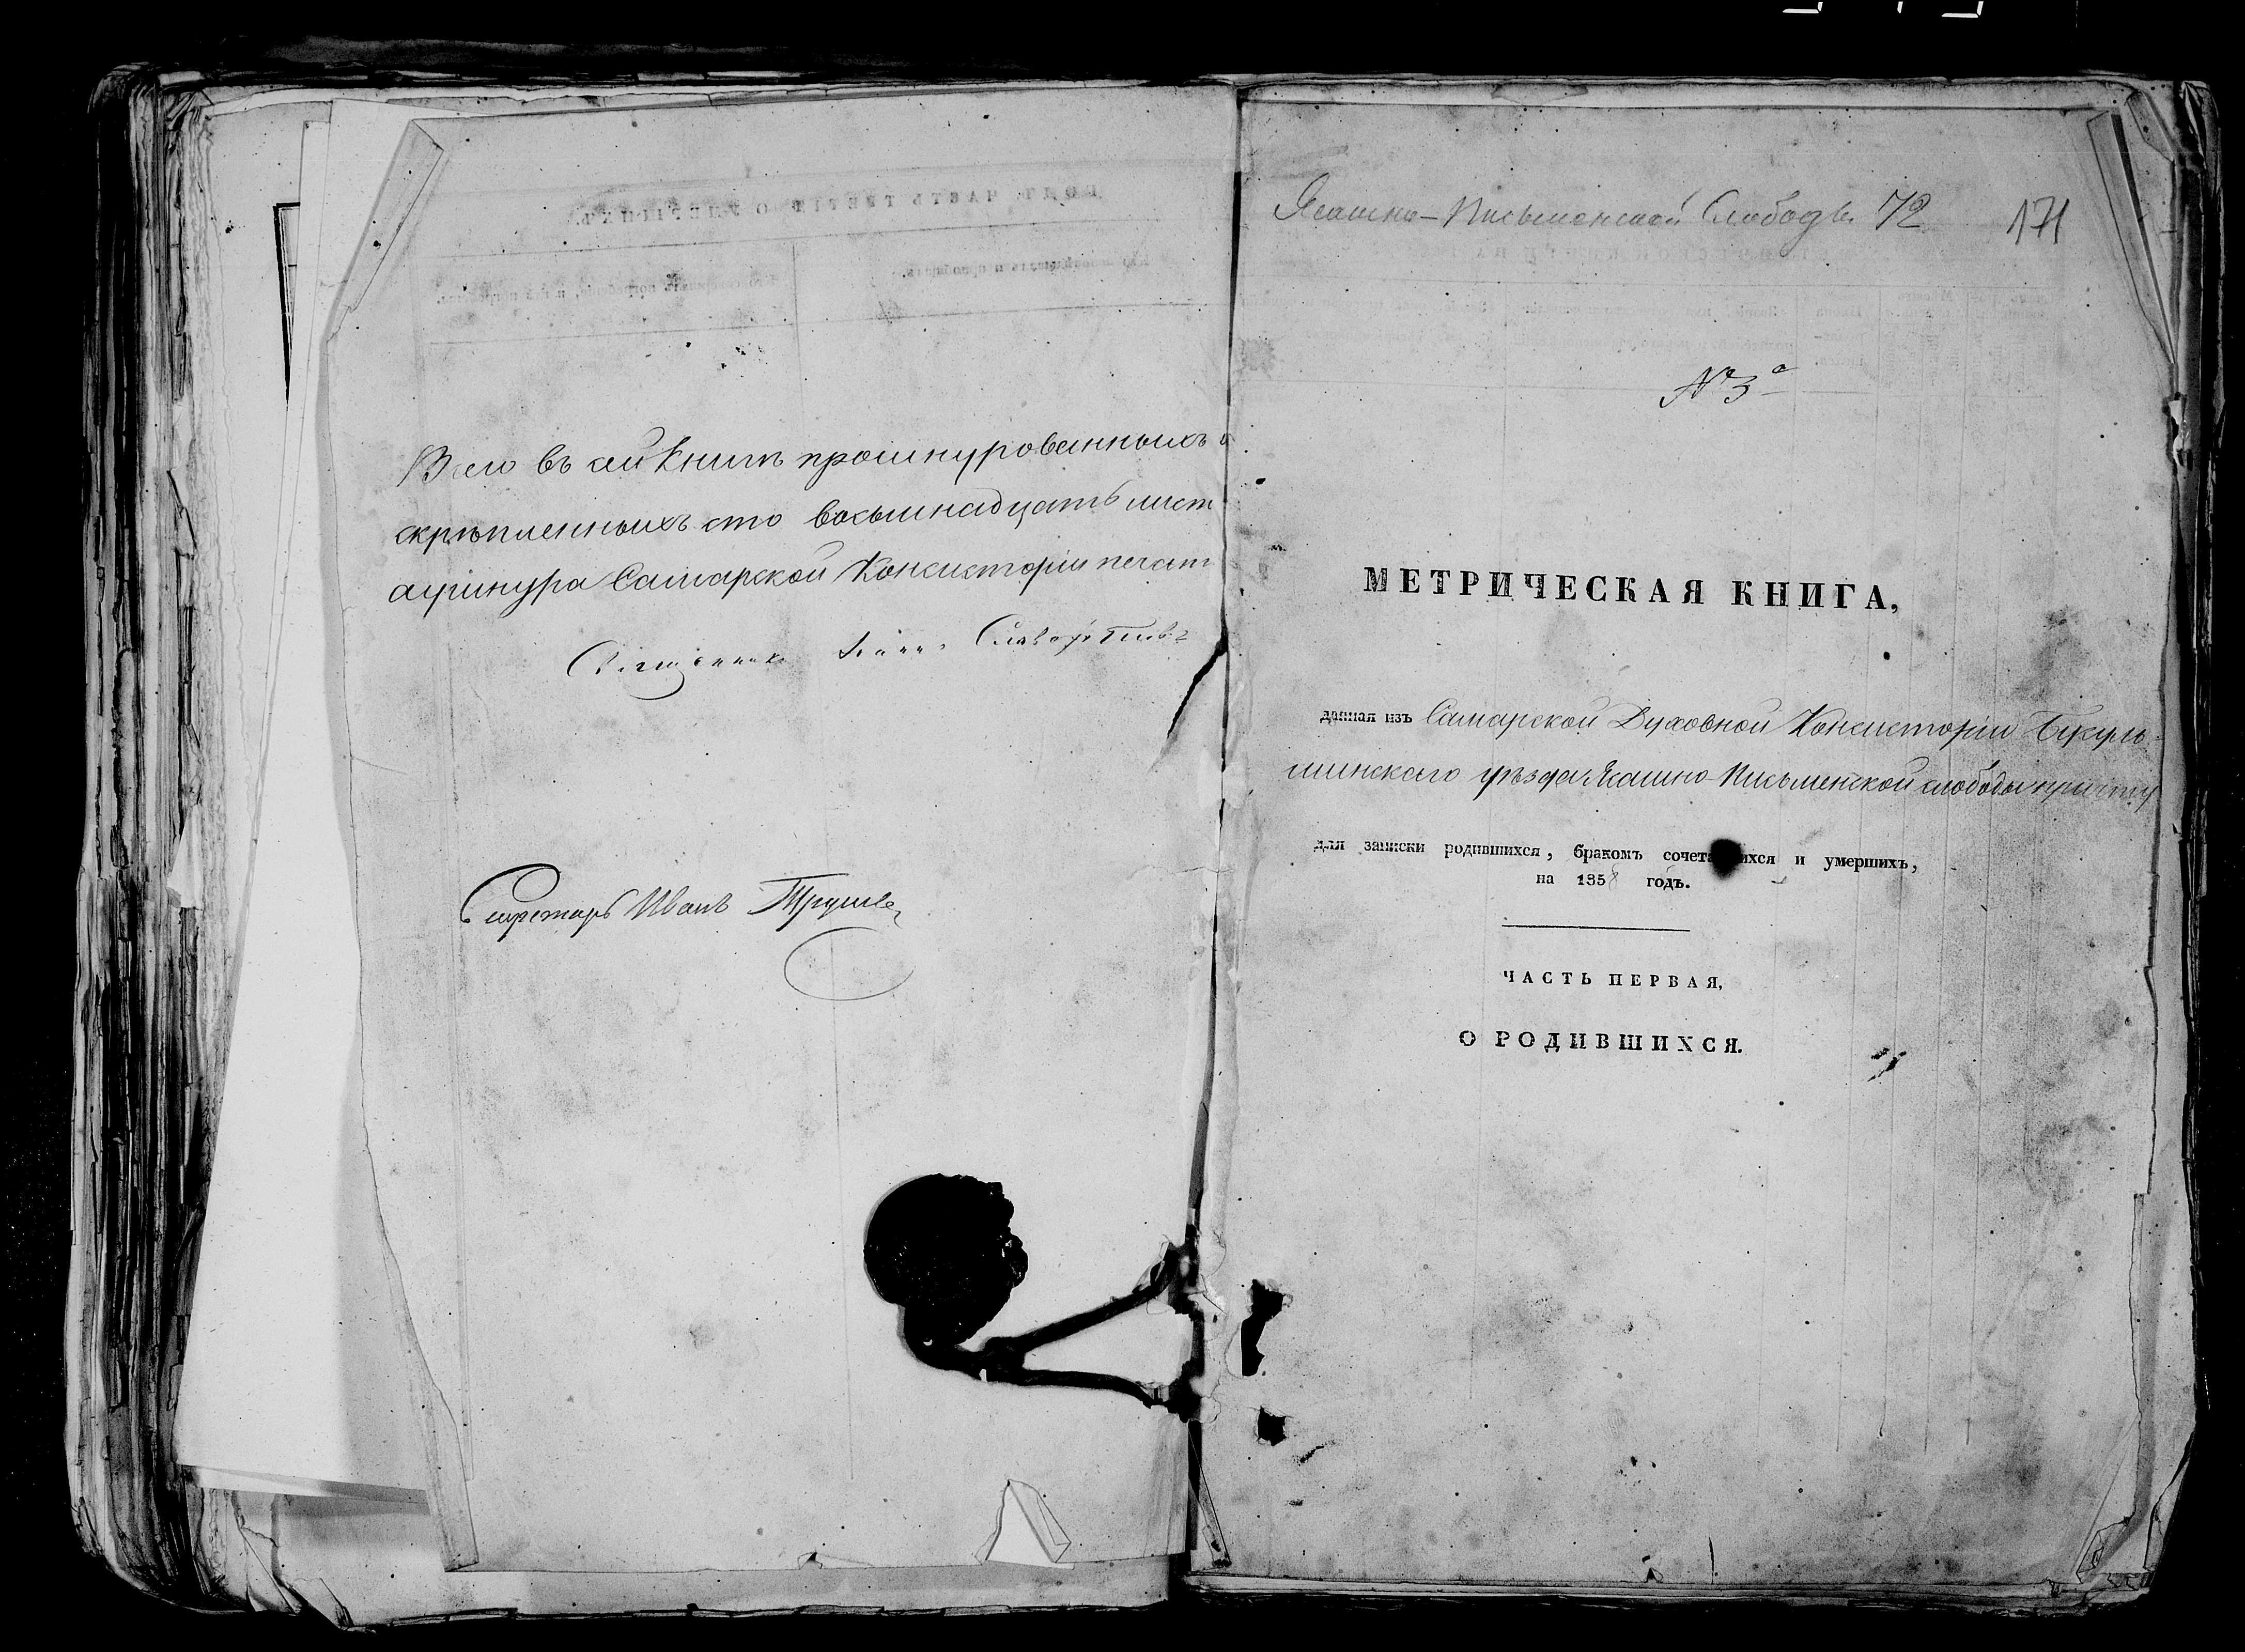 Всего въ сей Книгѣ прошнурованныхъ и
скрѣпленныхъ сто восьмнадцать лист
а у шнура Самарской Консисторіи печат
Священникъ Іоаннъ
Секретарь Иванъ
Ясашно-Письменской Слободѣ 72
171
№ 3а
МЕТРИЧЕСКАЯ КНИГА,
данная изъ Самарской Духовной Консисторіи Бугуль-
минскаго уѣзда Ясашно-Письменской слободы причту
для записки родившихся, бракомъ сочета ихся и умершихъ,
на 1858 годъ.
ЧАСТЬ ПЕРВАЯ,
О РОДИВШИХСЯ.